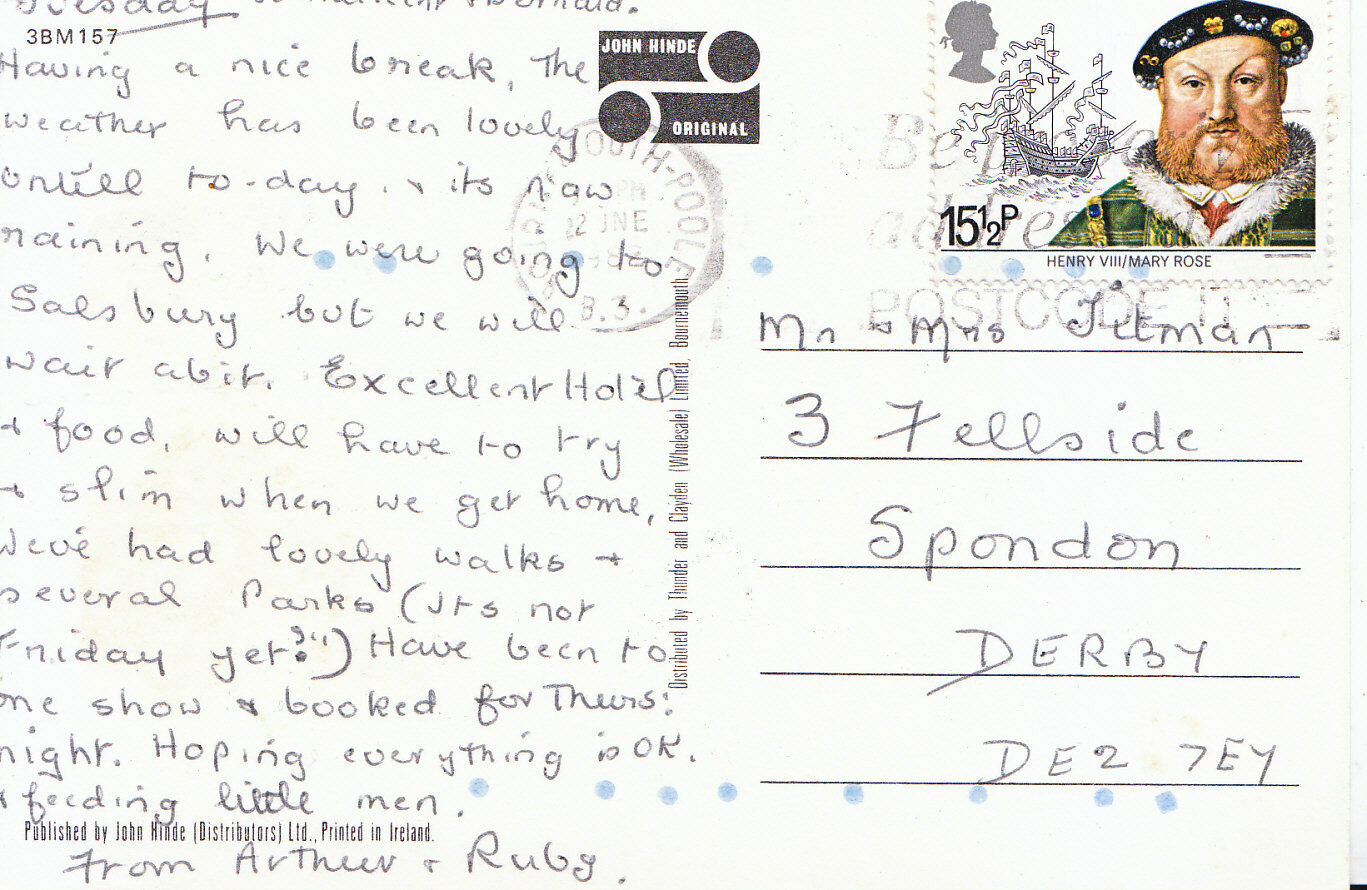 Tuesday
3BM157
Having a nice break, the
weather has been lovely
untill to-day. + its now
raining. We were going to
Salsbury but we will
wait abit. Excellent Hotel
+ food, will have to try
+ slim when we get home,
Weve had lovely walks +
several Parks (Its not
Friday yet?!") Have been to
one show & booked for Thurs:
night. Hoping everything is OK.
+ feeding little men.
From Arthur + Ruby.
Published by John Hinde (Distributors) Ltd., Printed in Ireland.
JOHN HINDE
ORIGINAL
Distributed by Thunder and Clayden (Wholesale) Limited, Bournemouth.
OUTH-POOLE
PM
12 JNE
B.3.
POSTCODE IT
15½P
HENRY VIII/MARY ROSE
Mr + Mrs Tilman
3 Fellside
Spondon
DERBY
DE2 7EY